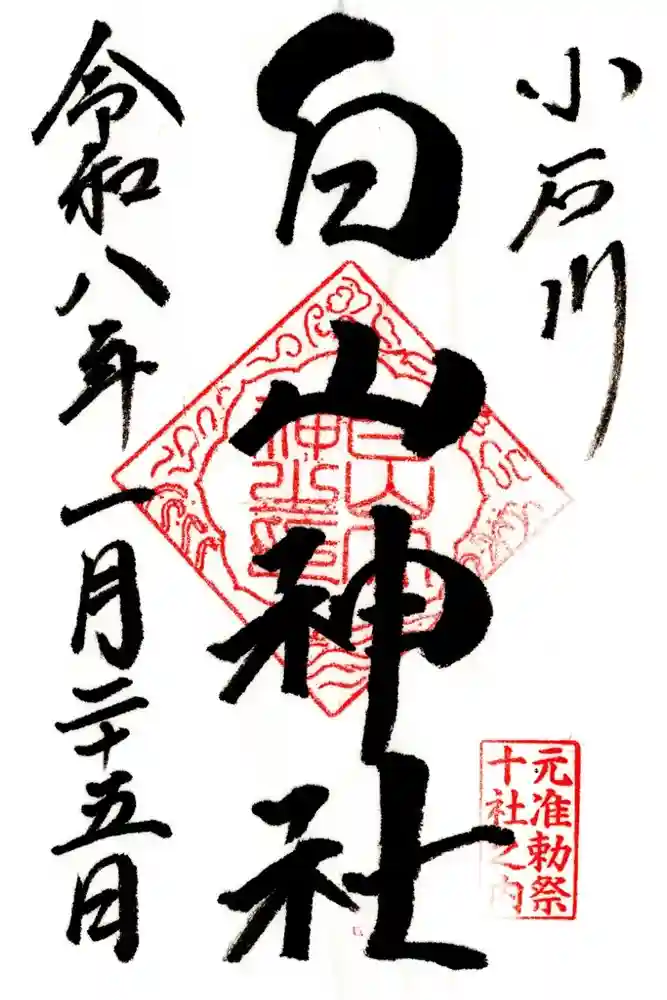 小石川
白山神社
令和八年一月二十五日
元准勅祭
十社之内